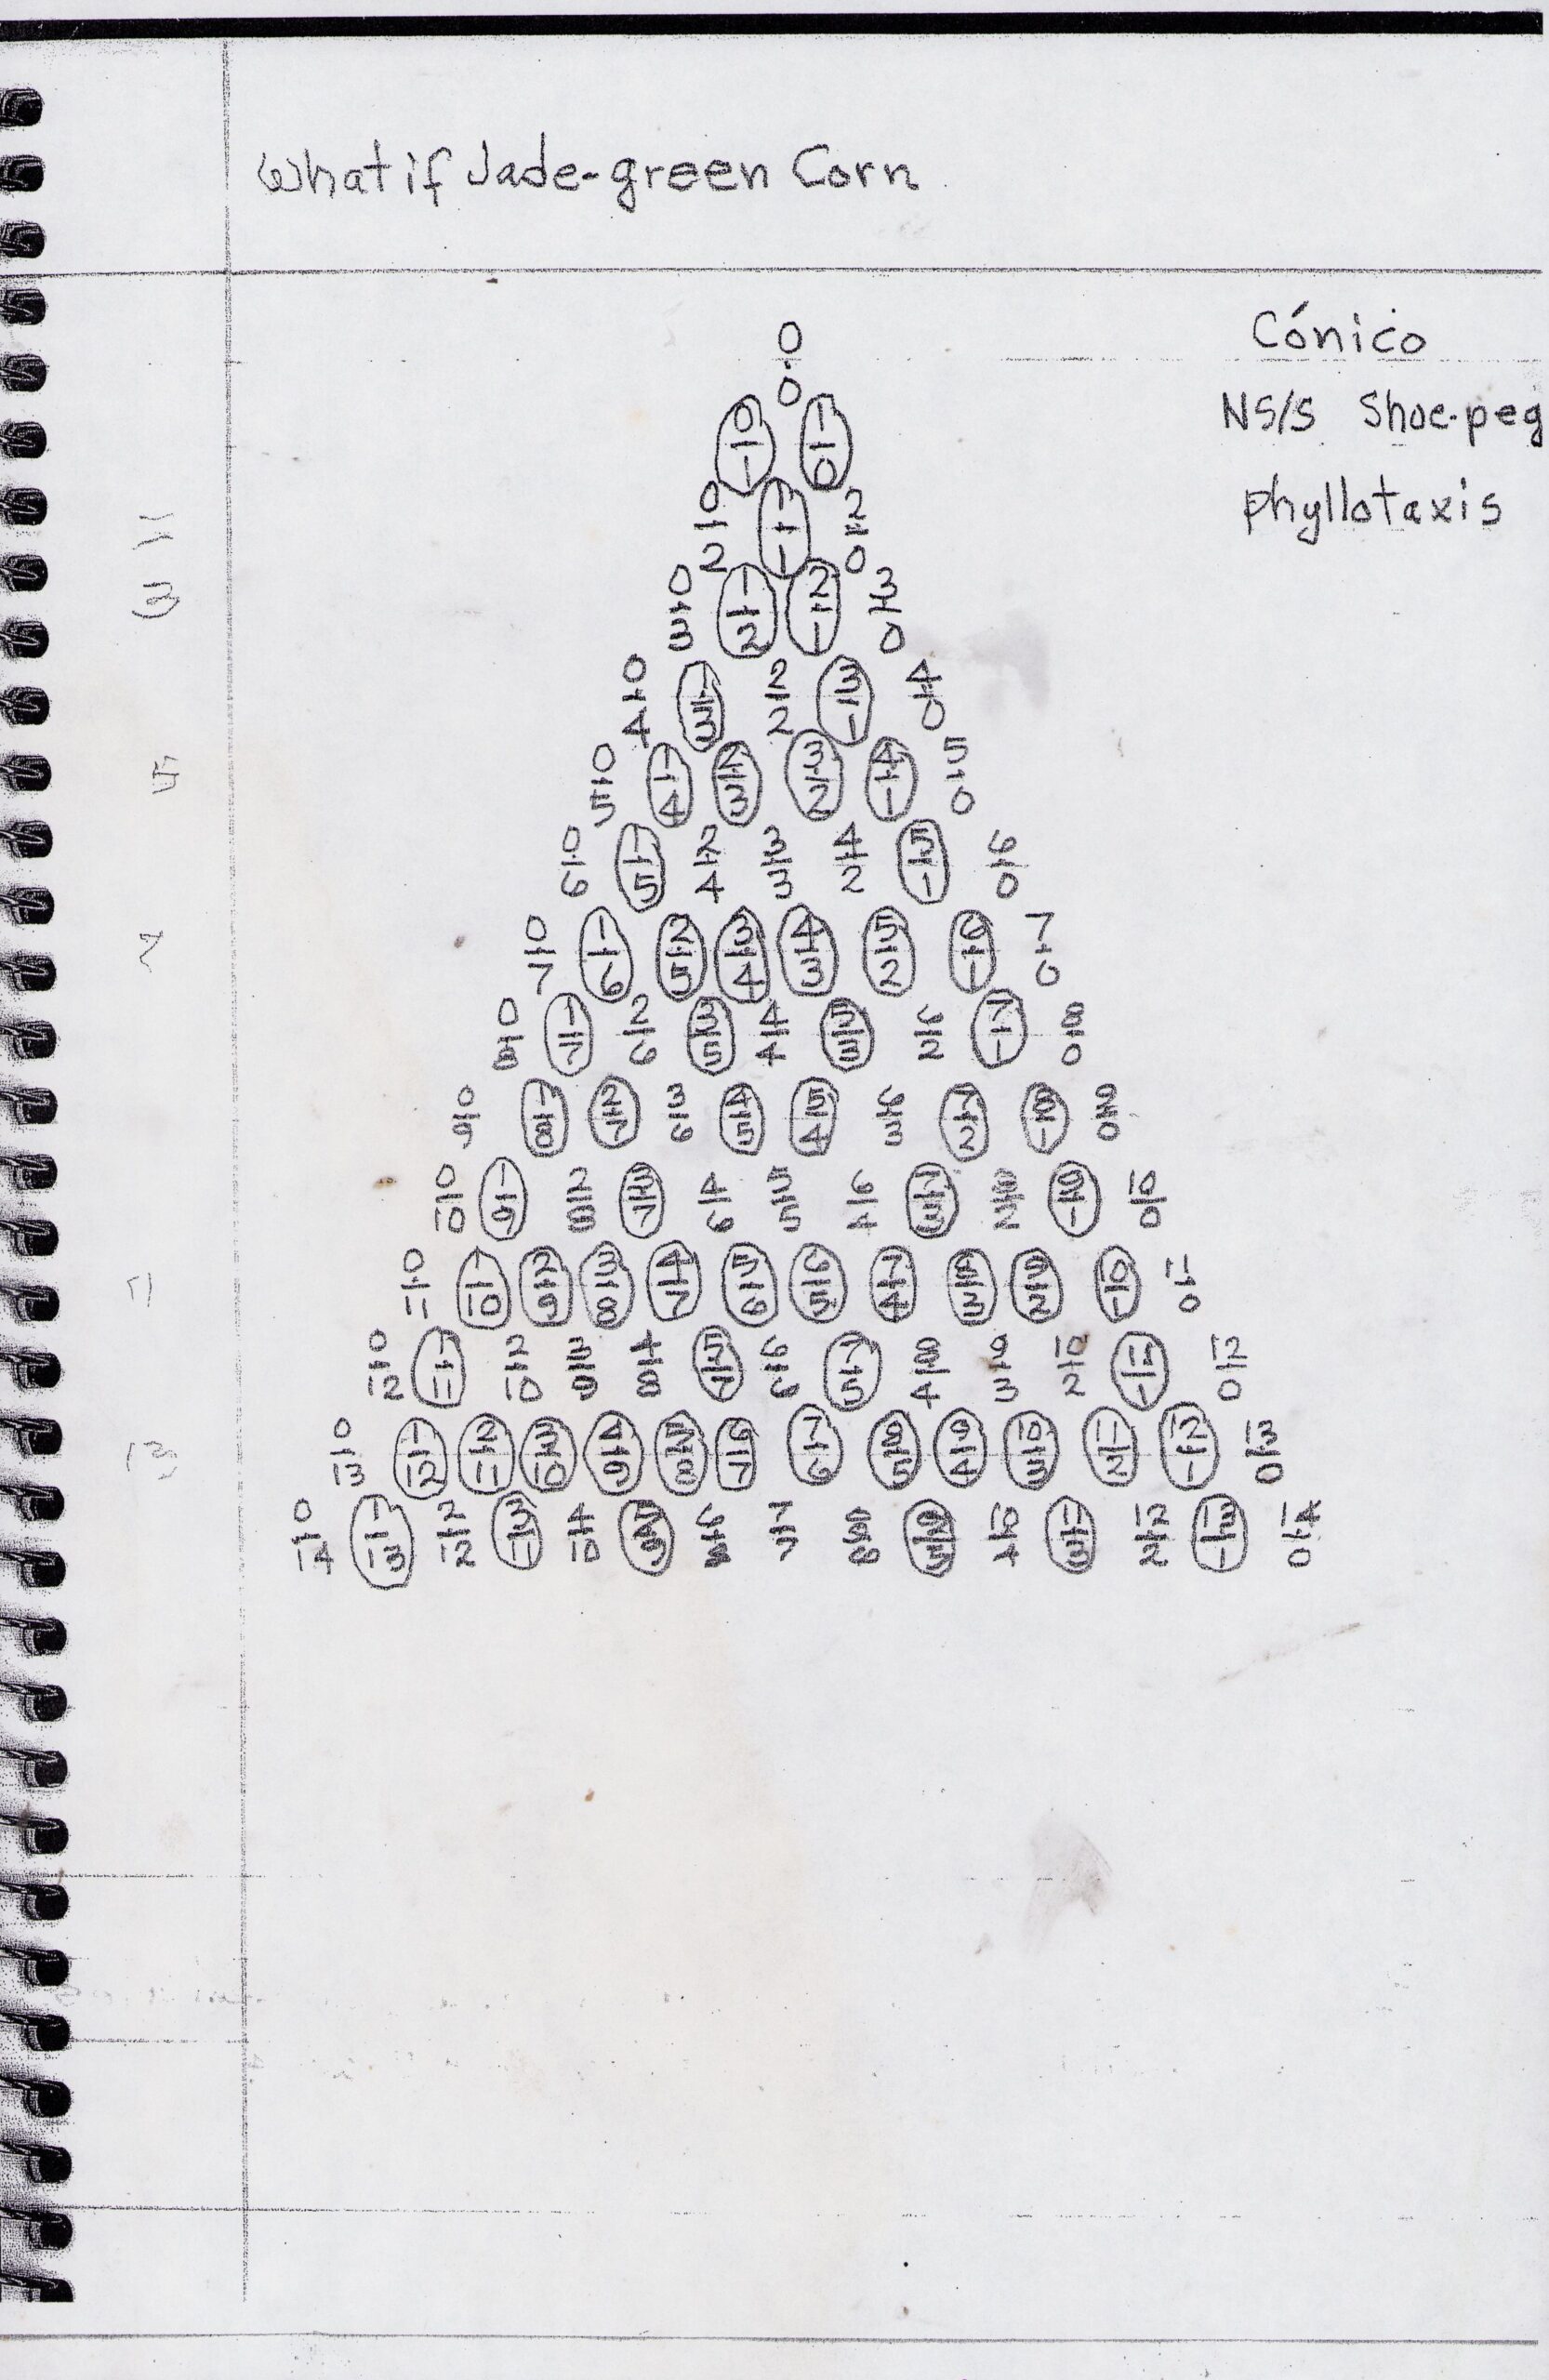 What if Jade-green Corn
Cónico
NS/S Shoe-peg
Phyllotaxis
0/0
0/1 1/0
0/2 1/1 2/0
3 0/3 1/2 2/1 3/0
0/4 1/3 2/2 3/1 4/0
5 0/5 1/4 2/3 3/2 4/1 5/0
0/6 1/5 2/4 3/3 4/2 5/1 6/0
7 0/7 1/6 2/5 3/4 4/3 5/2 6/1 7/0
0/8 1/7 2/6 3/5 4/4 5/3 6/2 7/1 8/0
0/9 1/8 2/7 3/6 4/5 5/4 6/3 7/2 8/1 9/0
0/10 1/9 2/8 3/7 4/6 5/5 6/4 7/3 8/2 9/1 10/0
11 0/11 1/10 2/9 3/8 4/7 5/6 6/5 7/4 8/3 9/2 10/1 11/0
0/12 1/11 2/10 3/9 4/8 5/7 6/6 7/5 8/4 9/3 10/2 11/1 12/0
13 0/13 1/12 2/11 3/10 4/9 5/8 6/7 7/6 8/5 9/4 10/3 11/2 12/1 13/0
0/14 1/13 2/12 3/11 4/10 5/9 6/8 7/7 8/6 9/5 10/4 11/3 12/2 13/1 14/0